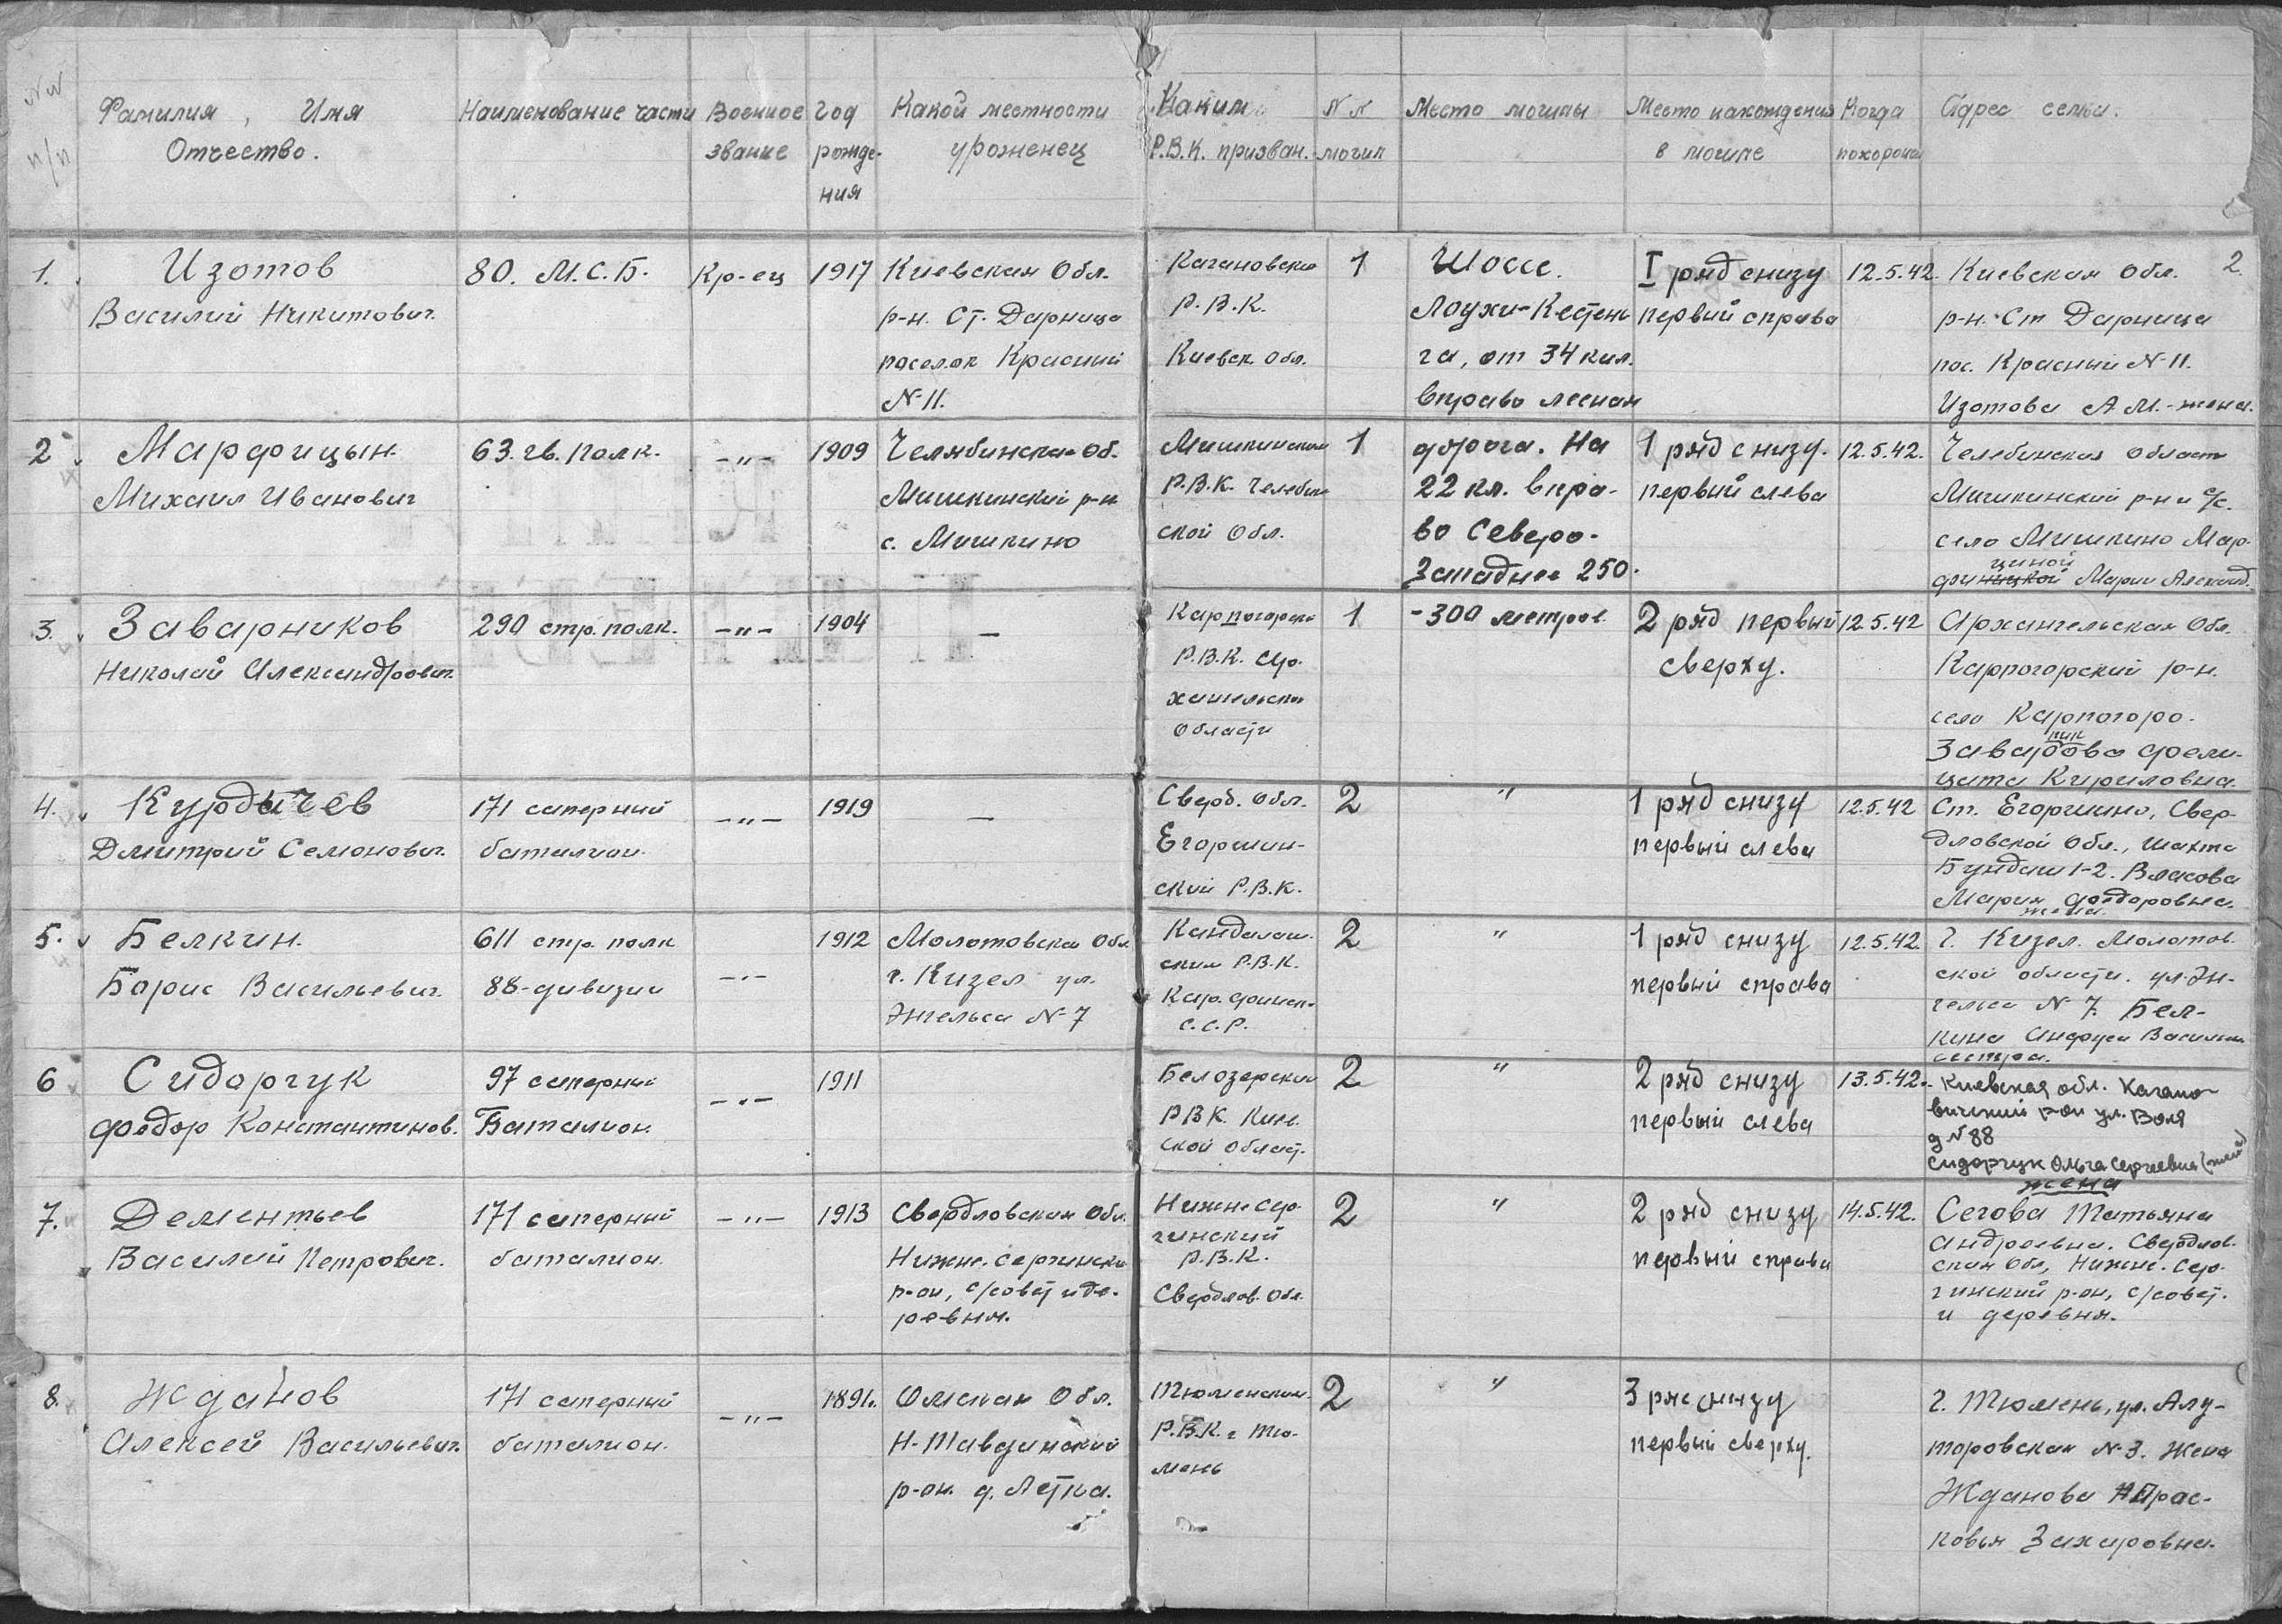 №№ п/п
Фамилия, Имя Отчество.
Наименование части
Военное звание
Год рождения
Какой местности уроженец
Каким Р.В.К. призван.
№№ могил
Место могилы
Место нахождения в могиле
Когда похоронен
Адрес семьи.
2.
1.
Изотов
Василий Никитович.
80. М.С.Б.
Кр-ец
1917
Киевская Обл.
р-н. Ст. Дарница
поселок Красный
N-11.
Кагановским
Р.В.К.
Киевск. Обл.
1
Шоссе.
Лоухи-Кестень
га, от 34 кил.
вправо лесная
I ряд снизу
первый справа
12.5.42.
Киевская Обл.
р-н. Ст Дарница
пос. Красный N-11.
Изотова А.М.-жена.
2
Марфицын.
Михаил Иванович
63. гв. полк.
-"-
1909
Челябинская Об.
Мишкинский р-н
с. Мишкино
Мишкинским
Р.В.К. Челябин
ской Обл.
1
дорога. На
22 кл. впра-
во Северо-
Западнее 250.
1 ряд снизу.
первый слева
12.5.42.
Челебинская область
Мишкинский р-н и с/с.
село Мишкино Мар-
циной
финицкой Марии Александ.
3.
Заварников
Николай Александрович.
290 стр. полк.
-"-
1904
—
Карпогорск
Р.В.К. Ар-
хангельской
области
1
-300 метров.
2 ряд первый
сверху.
12.5.42
Архангельская Обл.
Карпогорский р-н.
село Карпогоро.
Заварова фели-
цата Кириловна.
4.
Курдычев
Дмитрий Семонович.
171 саперный
баталион.
-"-
1919
—
Сверд. Обл.
Егоршин-
ский Р.В.К.
2
"
1 ряд снизу
первый слева
12.5.42
Ст. Егоршино, Свер-
дловской Обл., Шахта
Бундаш 1-2. Власова
Мария фодоровна.
жена.
5.
Белкин.
Борис Васильевич.
611 стр. полк
88-дивизии
-"-
1912
Молотовская Обл.
г. Кизел ул.
Энгельса N-7
Кандалак.
ским Р.В.К.
Кар. финск.
С.С.Р.
2
"
1 ряд снизу
первый справа
12.5.42
г. Кизел. Молотов.
ской области. ул. Эн-
гельса N 7. Бел-
кина
сестра.
6
Сидорчук
фодор Константинов.
97 саперный
Баталион.
-"-
1911
Белозерский
РВК Киев.
ской област.
2
"
2 ряд снизу
первый слева
13.5.42.
Киевская обл. Кагано-
вичский р-он ул. Воля
д N 88
Сидорчук Ольга Сергеевна (жена)
7.
Дементьев
Василий Петрович.
171 саперный
баталион.
-"-
1913
Свердловская Обл.
Нижне. Сергински
р-он, с/совет и де-
ревня.
Нижне Сер-
гинский
Р.В.К.
Свердлов. Обл.
2
"
2 ряд снизу
первый справа
14.5.42.
жена
Сегова Татьяна
Андроевна. Свердлов.
ская Обл, Нижне. Сер-
гинский р-он, с/совет.
и деревня.
8.
Жданов
Алексей Васильевич.
171 саперный
баталион.
-"-
1891.
Омская Обл.
Н-Тавдинский
р-он. д. Летка.
Тюменским.
Р.В.К. г. Тю-
мень
2
"
3 ряд снизу
первый сверху.
г. Тюмень, ул. Алу-
торовская N-3. Жена
Жданова Прас-
ковья Захаровна.